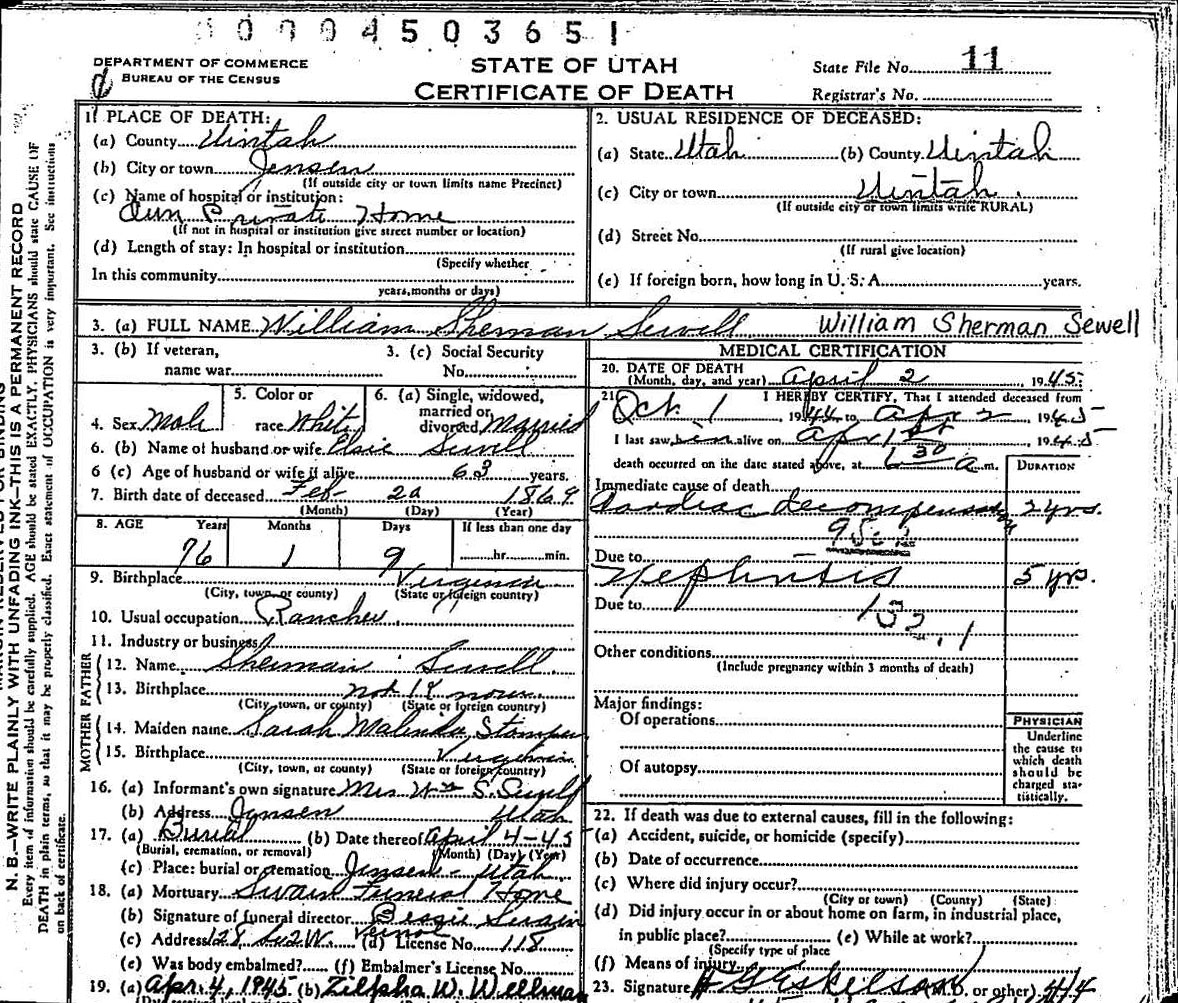 00004503651
DEPARTMENT OF COMMERCE
BUREAU OF THE CENSUS
STATE OF UTAH
CERTIFICATE OF DEATH
State File No. 11
Registrar's No.
1 PLACE OF DEATH:
(a) County Uintah
(b) City or town Jensen
(If outside city or town limits name Precinct)
(c) Name of hospital or institution:
Own Private Home
(If not in hospital or institution give street number or location)
(d) Length of stay: In hospital or institution
(Specify whether
In this community
years, months or days)
2. USUAL RESIDENCE OF DECEASED:
(a) State Utah (b) County Uintah
(c) City or town Uintah
(If outside city or town limits write RURAL)
(d) Street No.
(If rural give location)
(e) If foreign born, how long in U. S. A. years.
3. (a) FULL NAME William Sherman Sewell William Sherman Sewell
3. (b) If veteran,
name war
3. (c) Social Security
No.
4. Sex Male
5. Color or
race White
6. (a) Single, widowed,
married or
divorced Married
6. (b) Name of husband or wife Elsie Sewell
6 (c) Age of husband or wife if alive 63 years.
7. Birth date of deceased Feb- 20 1869
(Month) (Day) (Year)
8. AGE Years Months Days If less than one day
76 1 9 hr. min.
9. Birthplace Virginia
(City, town, or county) (State or foreign country)
10. Usual occupation Rancher
11. Industry or business
FATHER
12. Name Sherman Sewell
13. Birthplace not
(City, town, or county) (State or foreign country)
MOTHER
14. Maiden name Sarah Malinda Stamper
15. Birthplace Virginia
(City, town, or county) (State or foreign country)
16. (a) Informant's own signature Mrs Wm S. Sewell
(b) Address Jensen Utah
17. (a) Burial (b) Date thereof April 4-45
(Burial, cremation, or removal) (Month) (Day) (Year)
(c) Place: burial or cremation Jensen - Utah
18. (a) Mortuary Swain Funeral Home
(b) Signature of funeral director Bessie Swain
(c) Address 128 So 2 W. Vernal (d) License No. 118
(e) Was body embalmed? (f) Embalmer's License No.
19. (a) Apr. 4, 1945 (b) Zilpha W. Wellman
MEDICAL CERTIFICATION
20. DATE OF DEATH
(Month, day, and year) April 2, 1945
21. I HEREBY CERTIFY, That I attended deceased from
Oct 1 1944 to Apr 2 1945
I last saw him alive on Apr 1st 1945
death occurred on the date stated above, at 6 30 a m.
DURATION
Immediate cause of death
Cardiac decompensation 2 yrs.
Due to
Nephritis 5 yrs.
Due to
132.1
Other conditions
(Include pregnancy within 3 months of death)
Major findings:
Of operations
Of autopsy
PHYSICIAN
Underline
the cause to
which death
should be
charged sta-
tistically.
22. If death was due to external causes, fill in the following:
(a) Accident, suicide, or homicide (specify)
(b) Date of occurrence
(c) Where did injury occur?
(City or town) (County) (State)
(d) Did injury occur in or about home on farm, in industrial place,
in public place? (e) While at work?
(Specify type of place
(f) Means of injury
23. Signature (M.D. or other) 4/4
N. B.—WRITE PLAINLY WITH UNFADING INK—THIS IS A PERMANENT RECORD
Every item of information should be carefully supplied. AGE should be stated EXACTLY. PHYSICIANS should state CAUSE OF
DEATH in plain terms, so that it may be properly classified. Exact statement of OCCUPATION is very important. See instructions
on back of certificate.